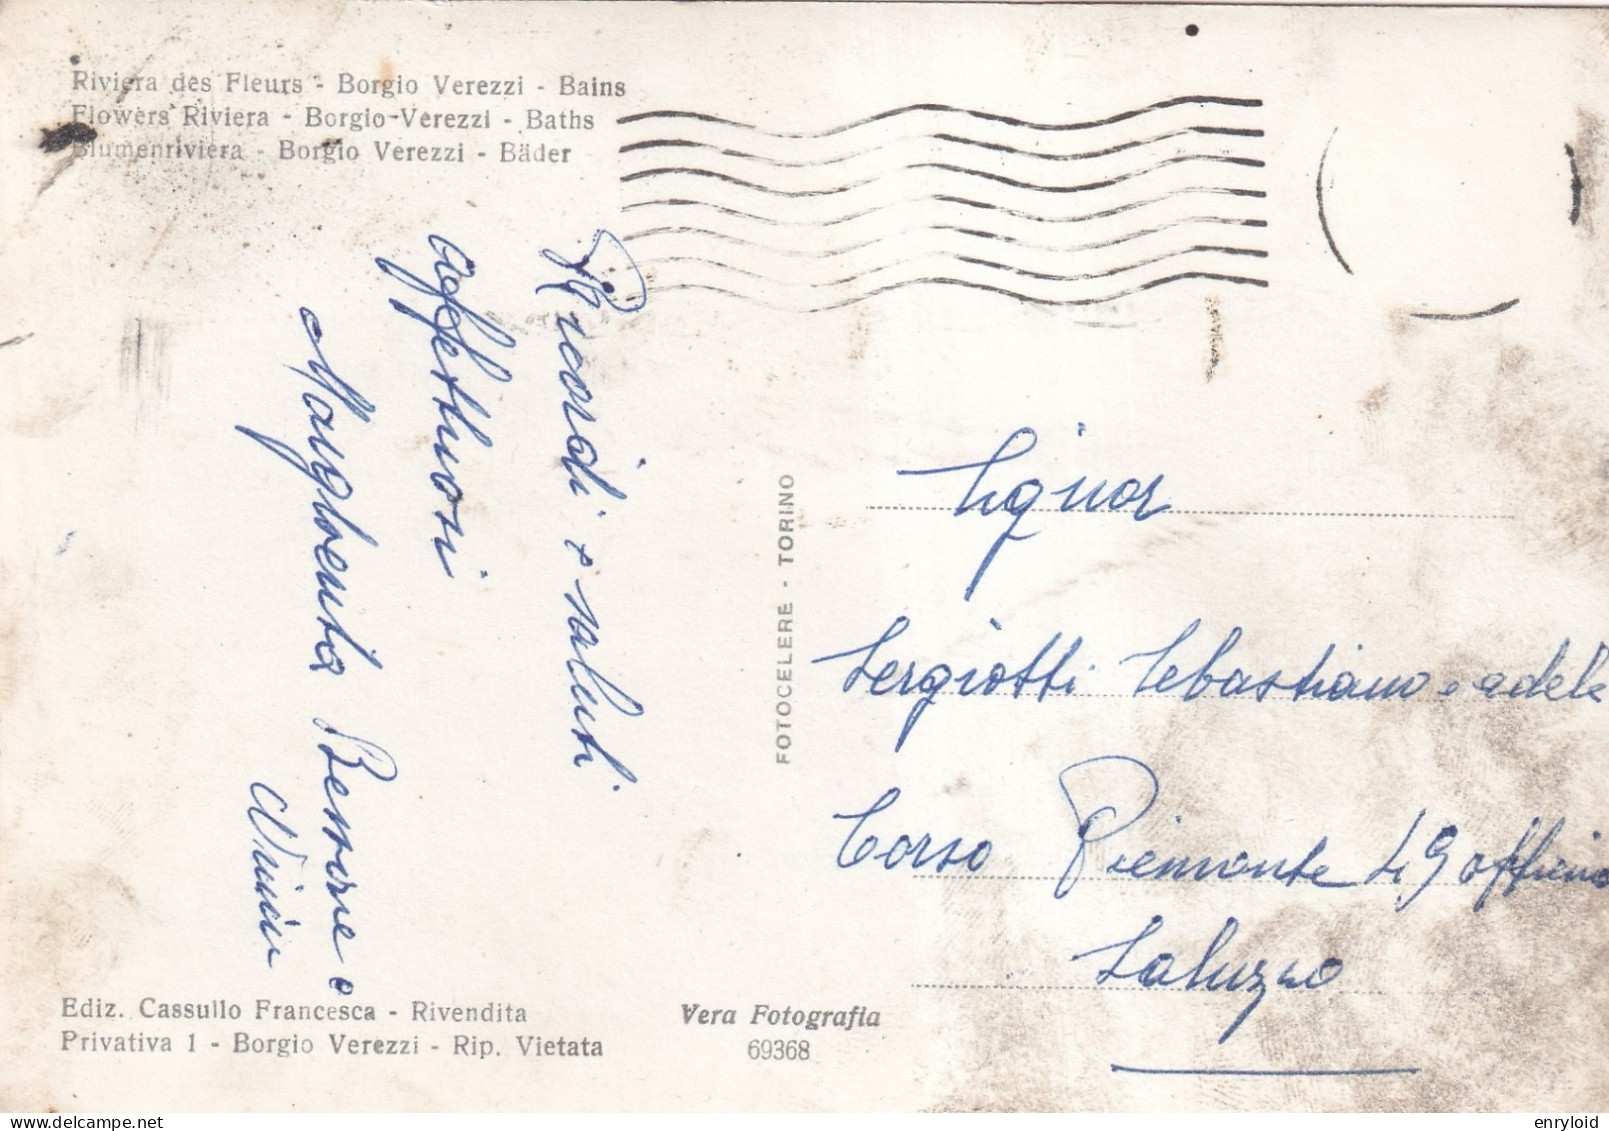 Riviera des Fleurs - Borgio Verezzi - Bains
Flowers Riviera - Borgio-Verezzi - Baths
Blumenriviera - Borgio Verezzi - Bäder
Ricordi e saluti
affettuosi
Margherita e
FOTOCELERE - TORINO
Signor
Sergiotti Sebastiano e adele
Corso Piemonte 49 officina
Saluzzo
Ediz. Cassullo Francesca - Rivendita
Privativa 1 - Borgio Verezzi - Rip. Vietata
Vera Fotografia
69368
enryloid